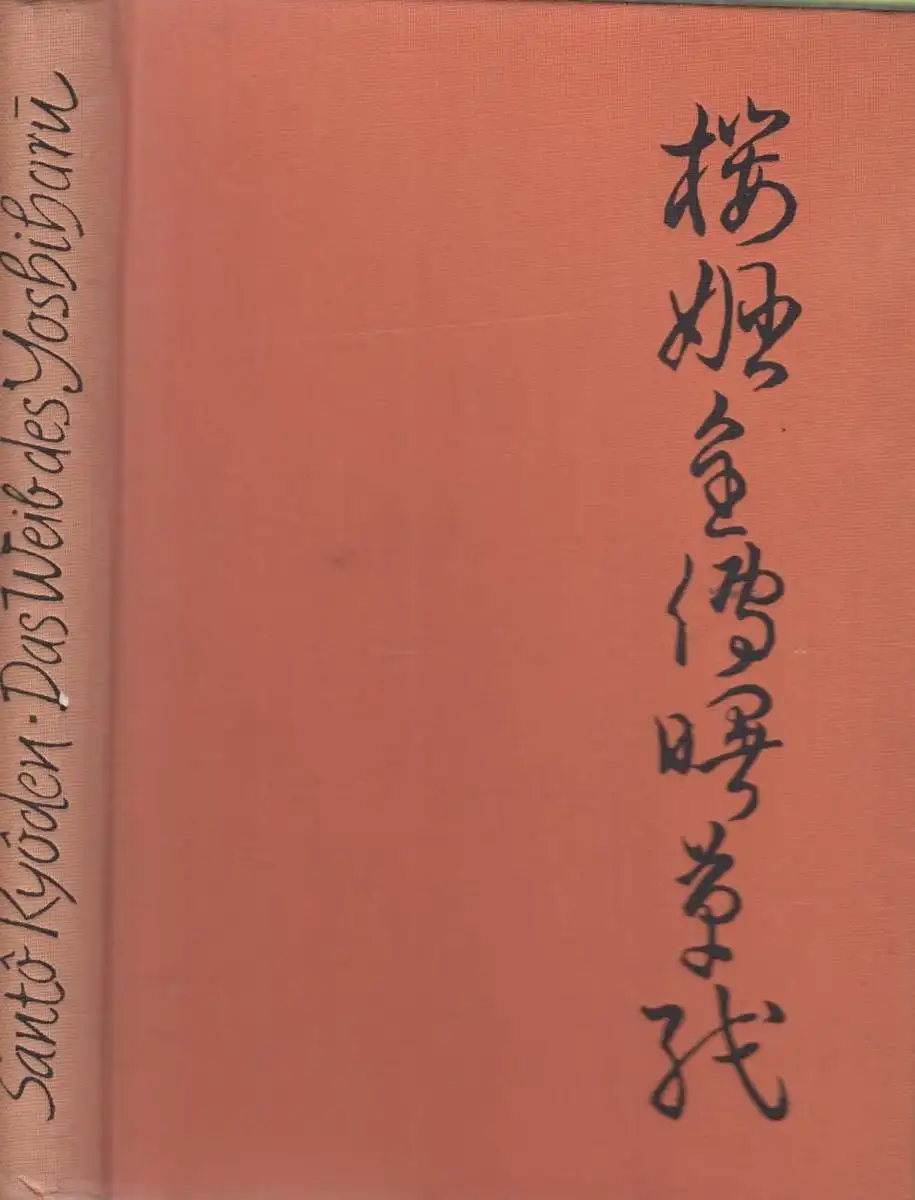 Santô Kyôden · Das Weib des Yoshiharū
桜姫全傳曙草紙